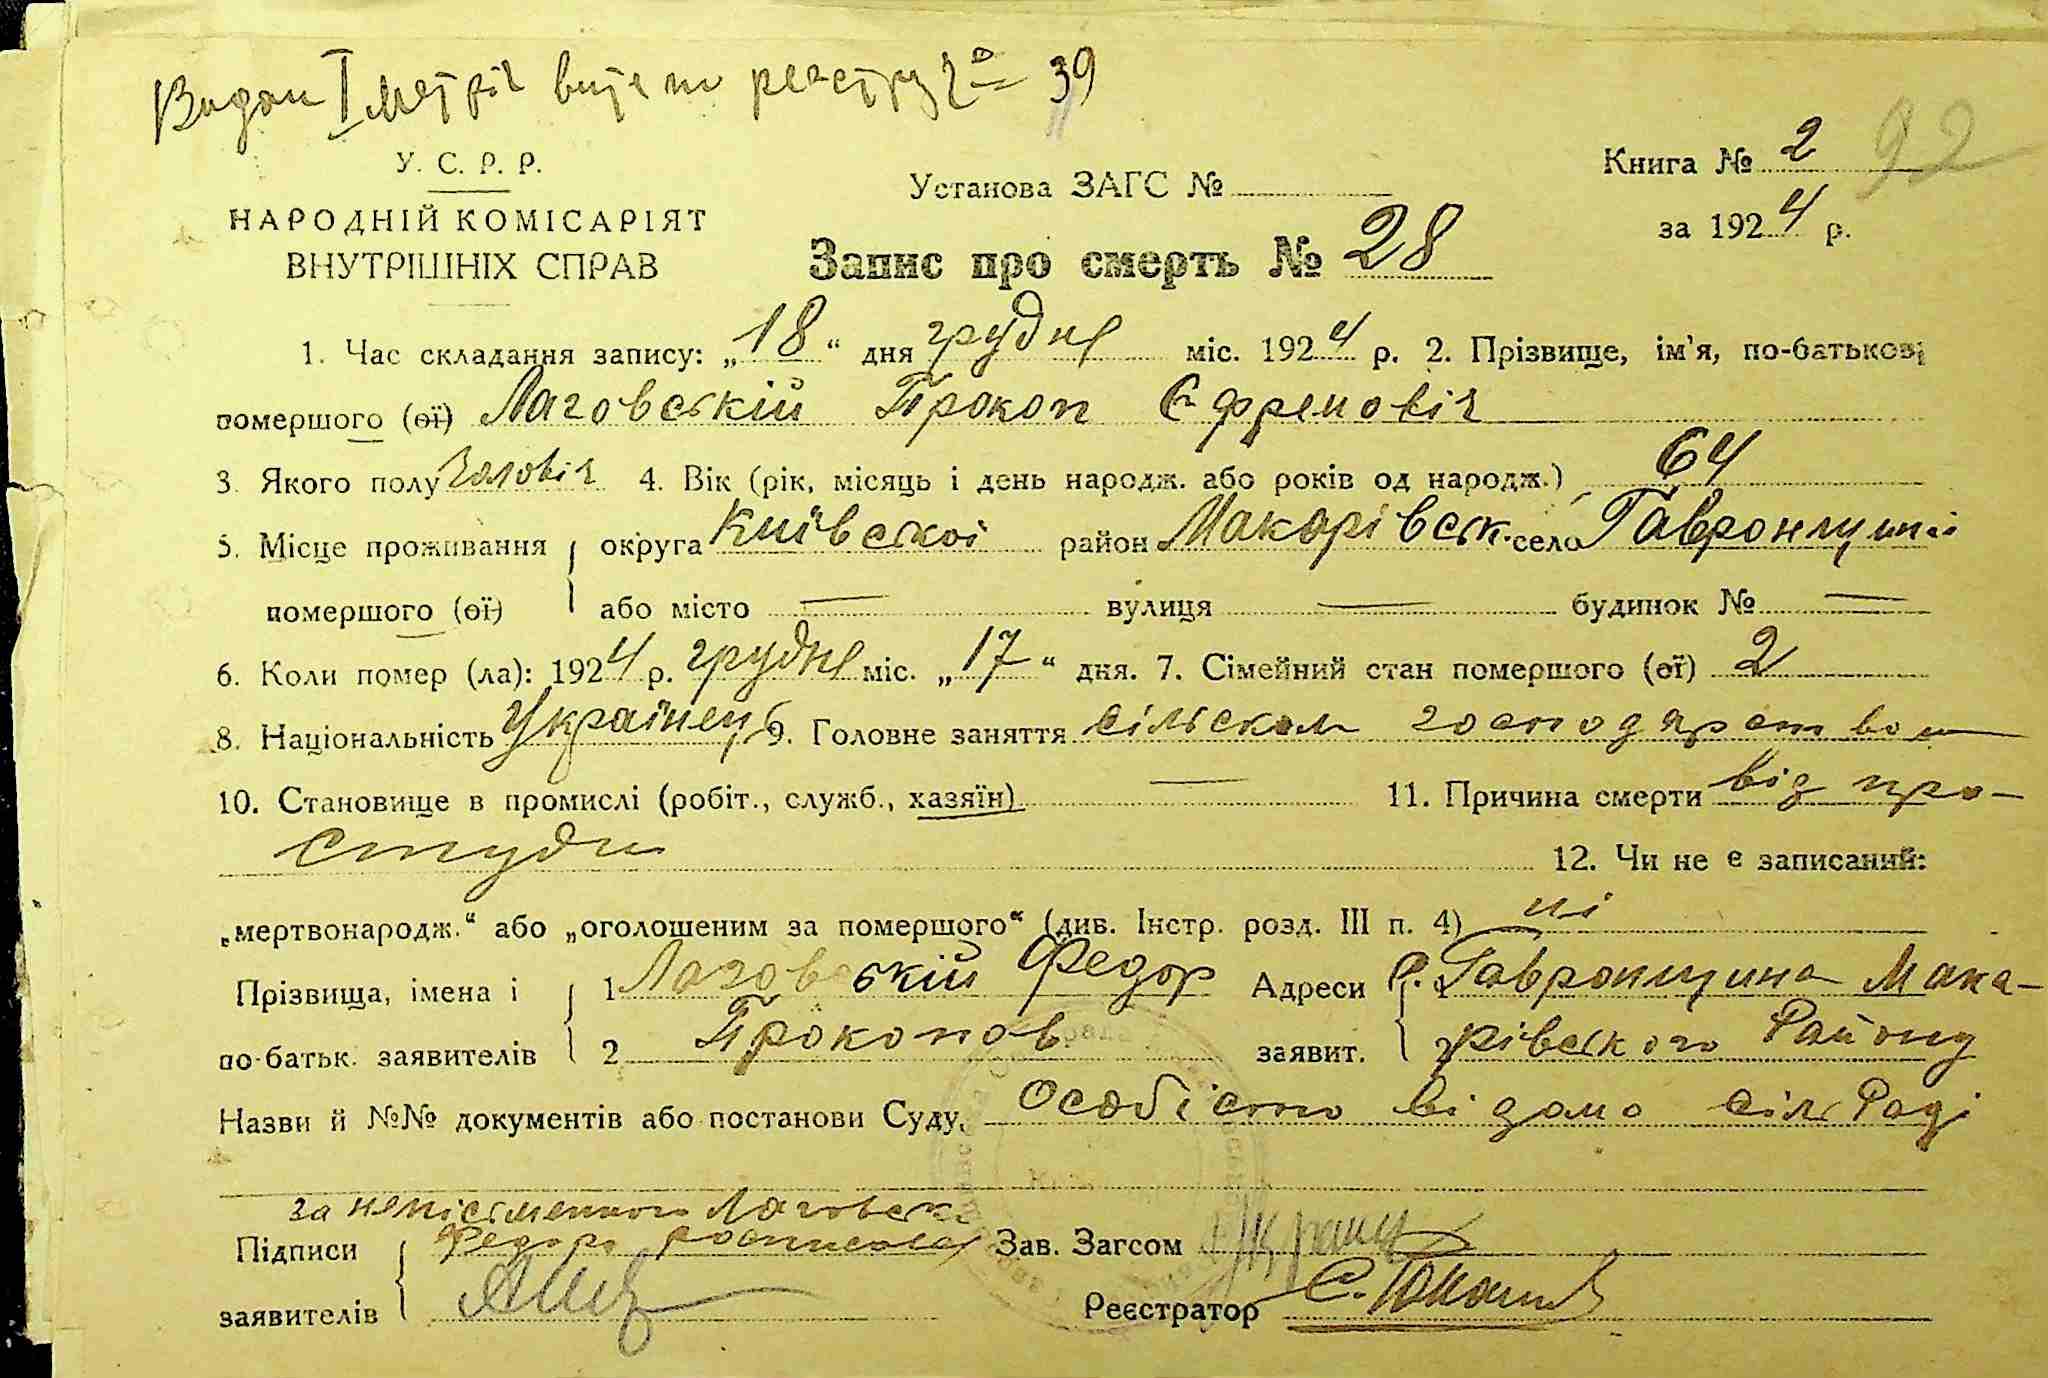 Видан І метрич витяг по реєстру № 39
У. С. Р. Р.
НАРОДНІЙ КОМІСАРІЯТ
ВНУТРІШНІХ СПРАВ
Установа ЗАГС №
Книга № 2 92
за 1924 р.
Запис про смерть № 28
1. Час складання запису: „18“ дня грудня міс. 1924 р. 2. Прізвище, ім'я, по-батькові
помершого (ої) Лаговський Прокоп Єфремовіч
3. Якого полу чоловіч 4. Вік (рік, місяць і день народж. або років од народж.) 64
5. Місце проживання округа Київської район Макарівськ. село Гавронщині
помершого (ої) або місто — вулиця — будинок № —
6. Коли помер (ла): 1924 р. грудня міс. „17“ дня. 7. Сімейний стан помершого (ої) 2
8. Національність Українець 9. Головне заняття сільским господарством
10. Становище в промислі (робіт., служб., хазяїн) — 11. Причина смерти від про-
студи 12. Чи не є записаний:
„мертвонародж.“ або „оголошеним за помершого“ (див. Інстр. розд. III п. 4) ні
Прізвища, імена і 1 Лаговській Федор Адреси 1 С. Гавронщина Мака-
по-батьк. заявителів 2 Прокопов заявит. 2 рівського Району
Назви й №№ документів або постанови Суду. Особісто відомо сільРаді
за непісьменного Лаговськ
Підписи Федора росписався Зав. Загсом
заявителів Реєстратор С.